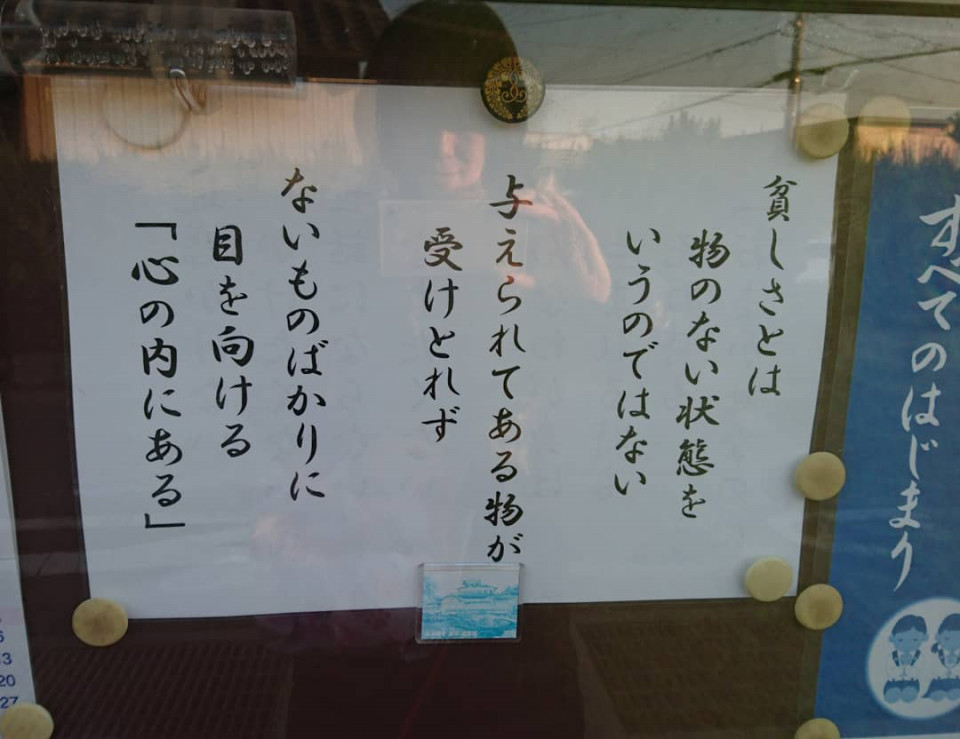 貧しさとは
物のない状態を
いうのではない
与えられてある物が
受けとれず
ないものばかりに
目を向ける
「心の内にある」
すべてのはじまり
6
13
20
27